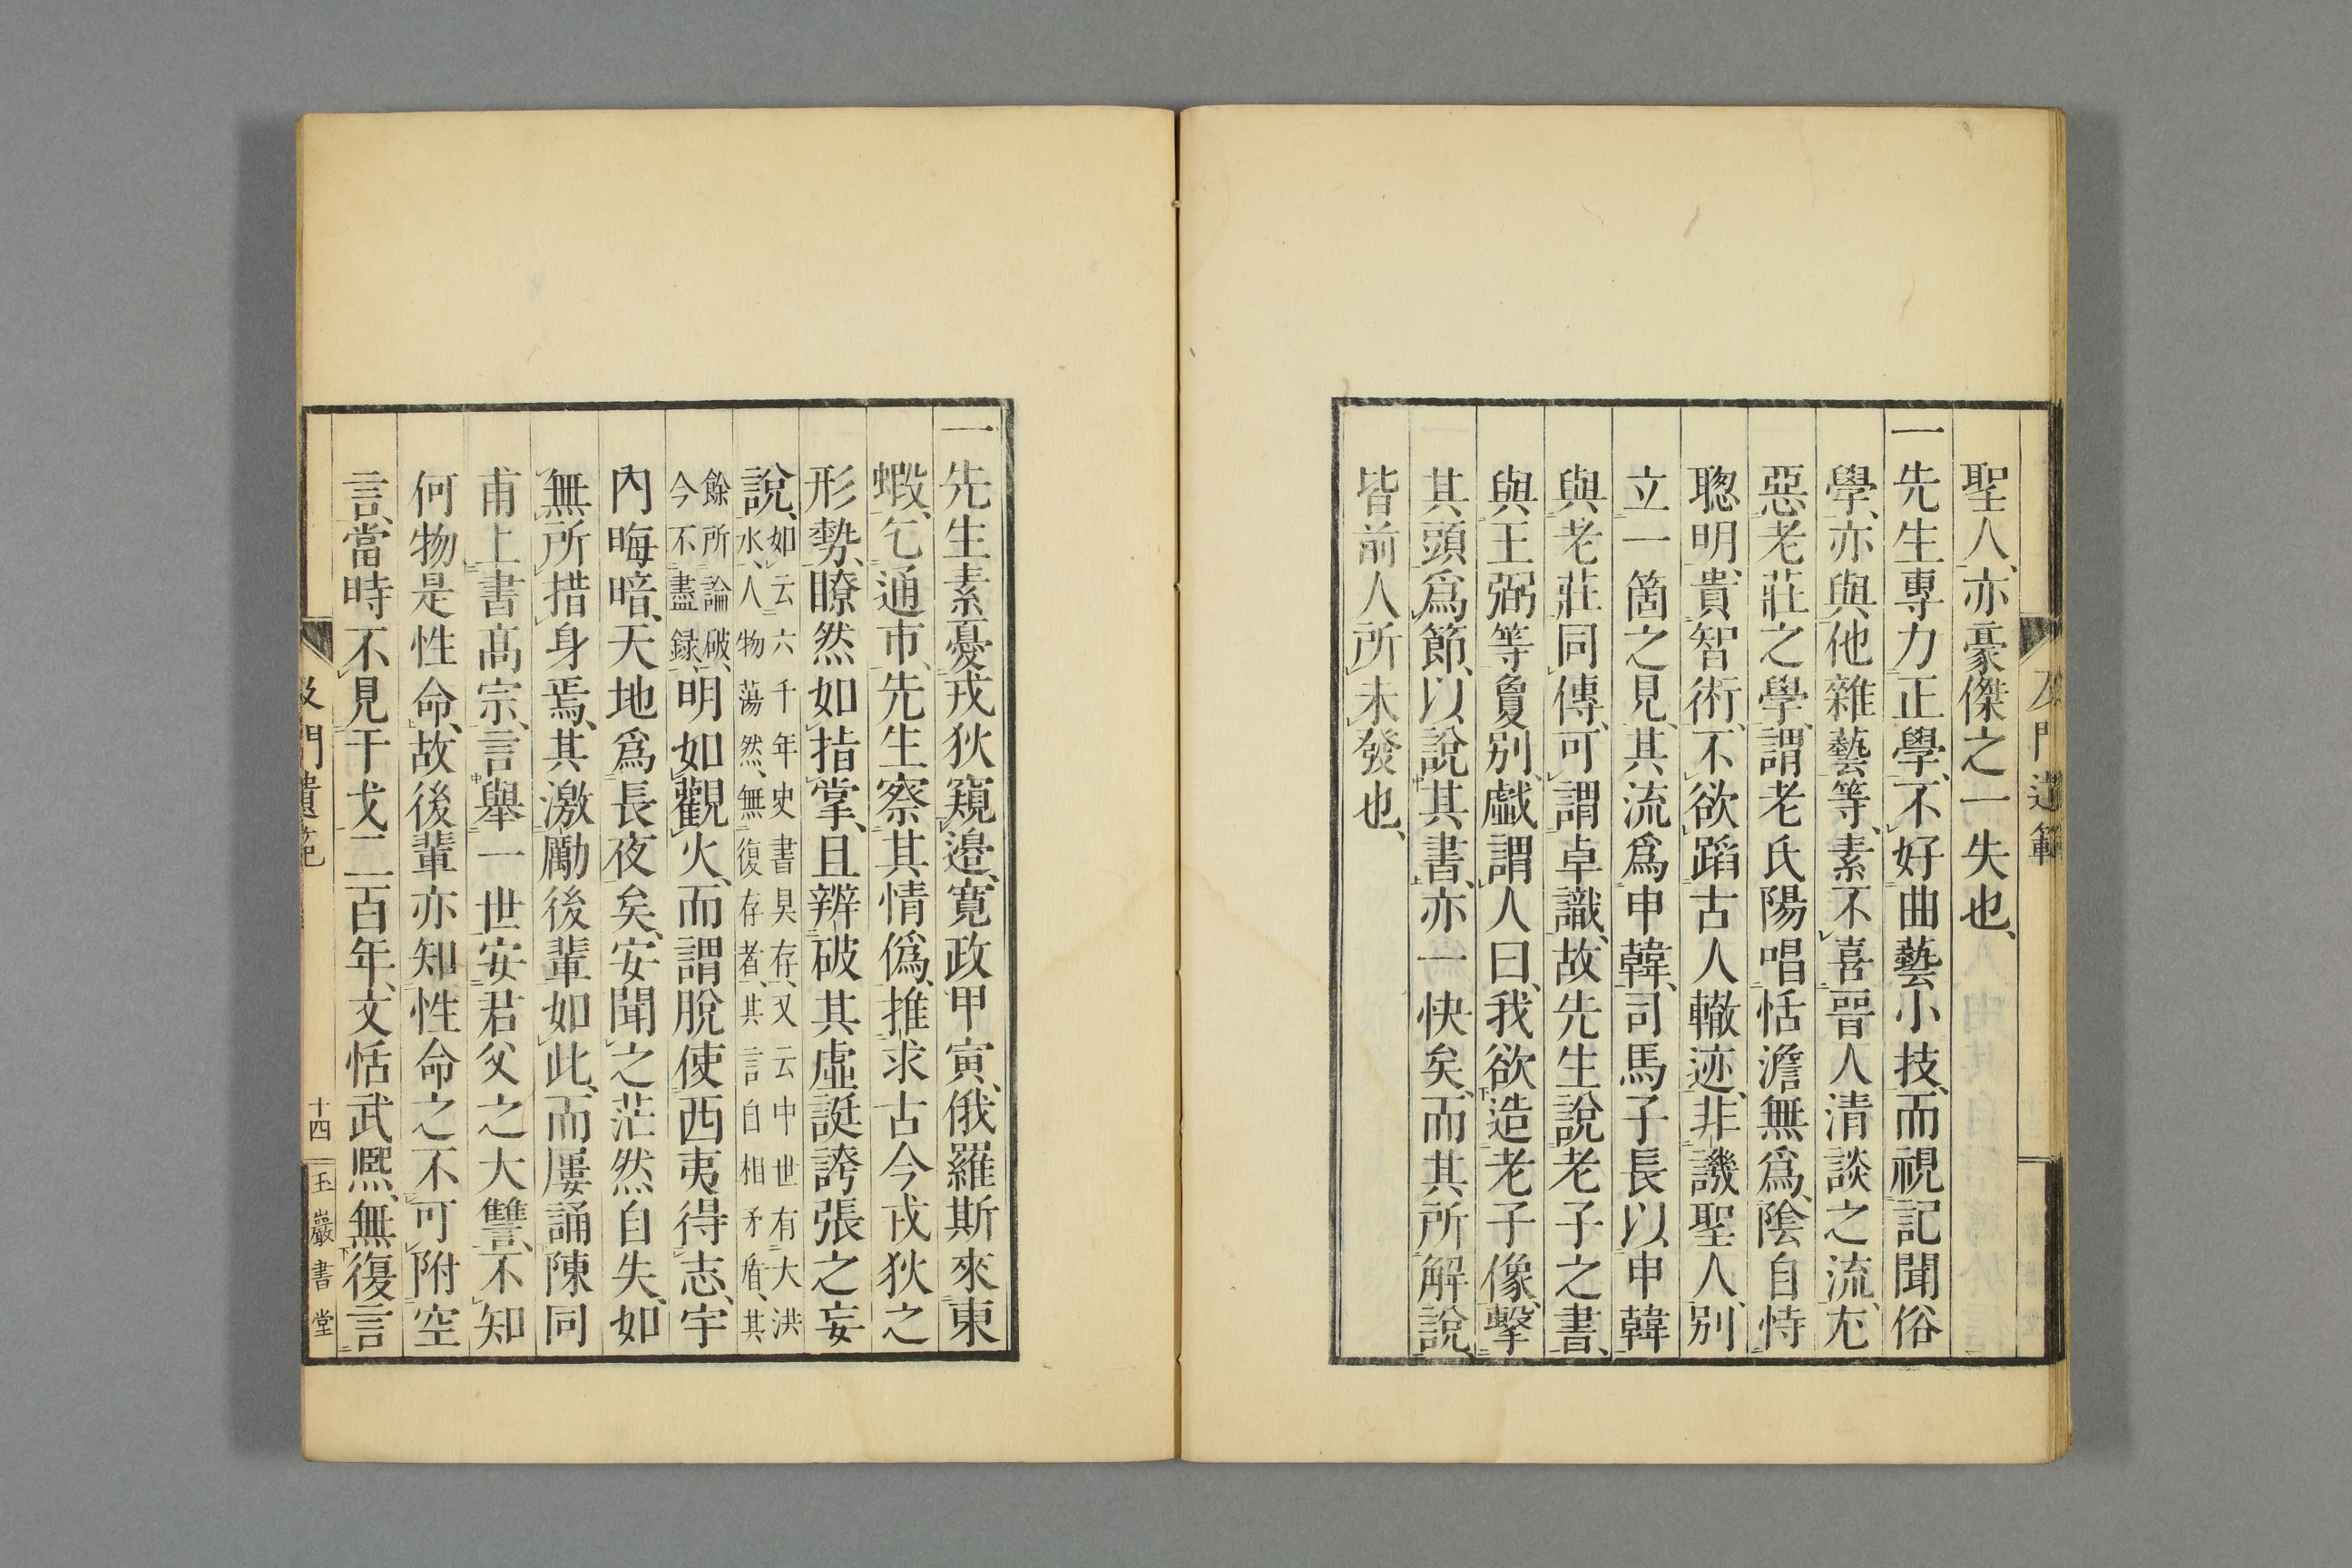 及門遺範
聖人、亦豪傑之一失也、
一先生專力正學、不好曲藝小技、而視記聞俗
學、亦與他雜藝等、素不喜晉人清談之流、尤
惡老莊之學、謂老氏陽唱恬澹無爲、陰自恃
聰明、貴智術、不欲蹈古人轍迹、非譏聖人、別
立一箇之見、其流爲申韓、司馬子長以申韓
與老莊同傳、可謂卓識、故先生說老子之書、
與王弼等敻別、戯謂人曰、我欲造老子像、擊
其頭爲節、以說其書、亦一快矣、而其所解說、
皆前人所未發也、
一先生素憂戎狄窺邉、寛政甲寅、俄羅斯來東
蝦、乞通市、先生察其情僞、推求古今戎狄之
形勢、瞭然如指掌、且辨破其虛誕誇張之妄
說、如云六千年史書具存、又云中世有大洪
水、人物蕩然、無復存者、其言自相矛盾、其
餘所論破、
今不盡録、明如觀火、而謂脫使西夷得志、宇
內晦暗、天地爲長夜矣、安聞之茫然自失、如
無所措身焉、其激勵後輩如此、而屢誦陳同
甫上書高宗、言舉一世安君父之大讐、不知
何物是性命、故後輩亦知性命之不可附空
言、當時不見干戈二百年、文恬武熈、無復言
及門遺範
十四
玉巖書堂